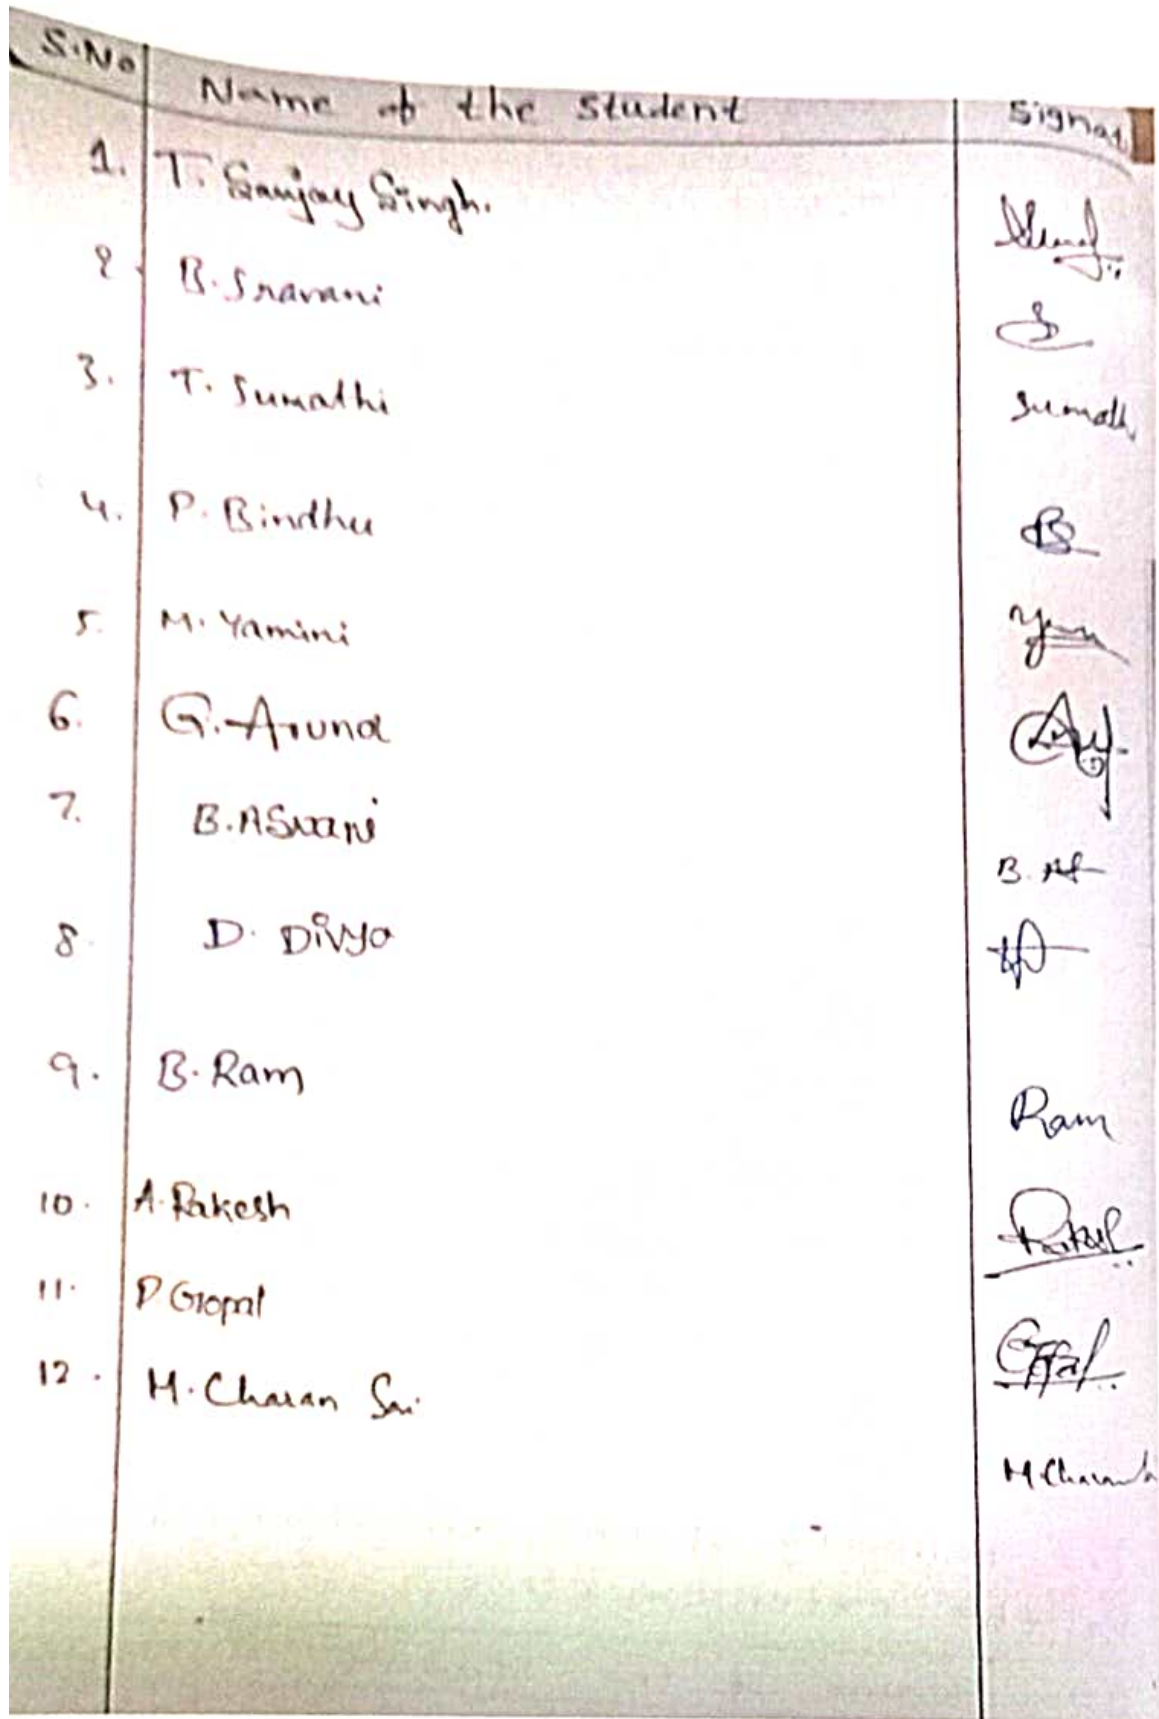 S.No Name of the Student Signat
1. T. Sanjay Singh.
2. B. Sravani
3. T. Sumathi Sumath
4. P. Bindhu B
5. M. Yamini
6. G. Aruna
7. B. ASwani B. As
8. D. Divya
9. B. Ram Ram
10. A. Rakesh
11. P. Gopal
12. M. Charan Sai